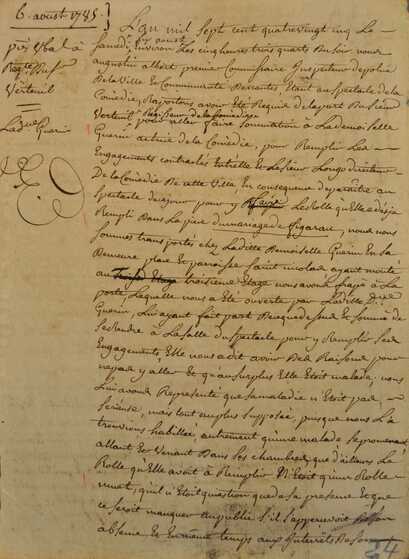 6. aoust 1785.
L'an mil sept cent quatre vingt cinq Le
Samedi six aoust Environ Les cinq heures trois quarts Du soir nous
augustin albert premier Commissaire Inspecteur de police
De la Ville et Communauté De nantes, Etant au spectacle de la
Comédie, Rapportons avoir été Requis de la part Du Sieur
Verteuil Régisseur de la Comédie
pour aller faire sommation à La demoiselle
Guerin actrice de la Comédie, pour Remplir Les
Engagements contractés Entrelle et Le sieur Longo directeur
De la Comédie De cette Ville En consequence de paroitre au
spectacle de ce jour pour y Le Rolle qu'Elle a deja
Rempli Dans La piece du mariage de figaro, nous nous
sommes transportés chez Laditte Demoiselle Guerin En sa
Demeure place et paroisse Saint nicolas ayant monté
au troisieme Etage nous avons frapé à La
porte, Laquelle nous a Eté ouverte par Laditte dlle
Guerin, Lui ayant fait part De ce que dessus et sommée de
se Rendre à La Salle du spectacle pour y Remplir ses
Engagements, Elle nous a dit avoir Des Raisons pour
ne pas y aller Et qu'au surplus Elle Etoit malade, nous
Lui avons Représenté que sa maladie n'Etoit pas
serieuse, mais tout au plus supposée, puisque nous La
trouvions habillée autrement qu'une malade se promenant
allant Et Venant Dans ses chambres, que d'ailleurs Le
Rolle qu'Elle avoit à Remplir N'Etoit qu'un Rolle
muet, qu'il n'Etoit question que de sa presence Et que
ce seroit manquer au public s'il s'appercevoit De son
absence Et En même temps aux Interrêts De son
pcès Vbal à
Reqte Du sr
Verteuil
La dlle Guerin